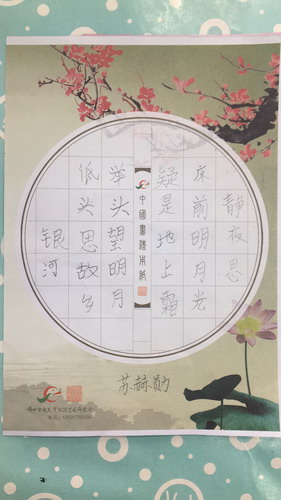 静夜思
床前明月光
疑是地上霜
中國書譜用紙
举头望明月
低头思故乡
银河
苏赫勋